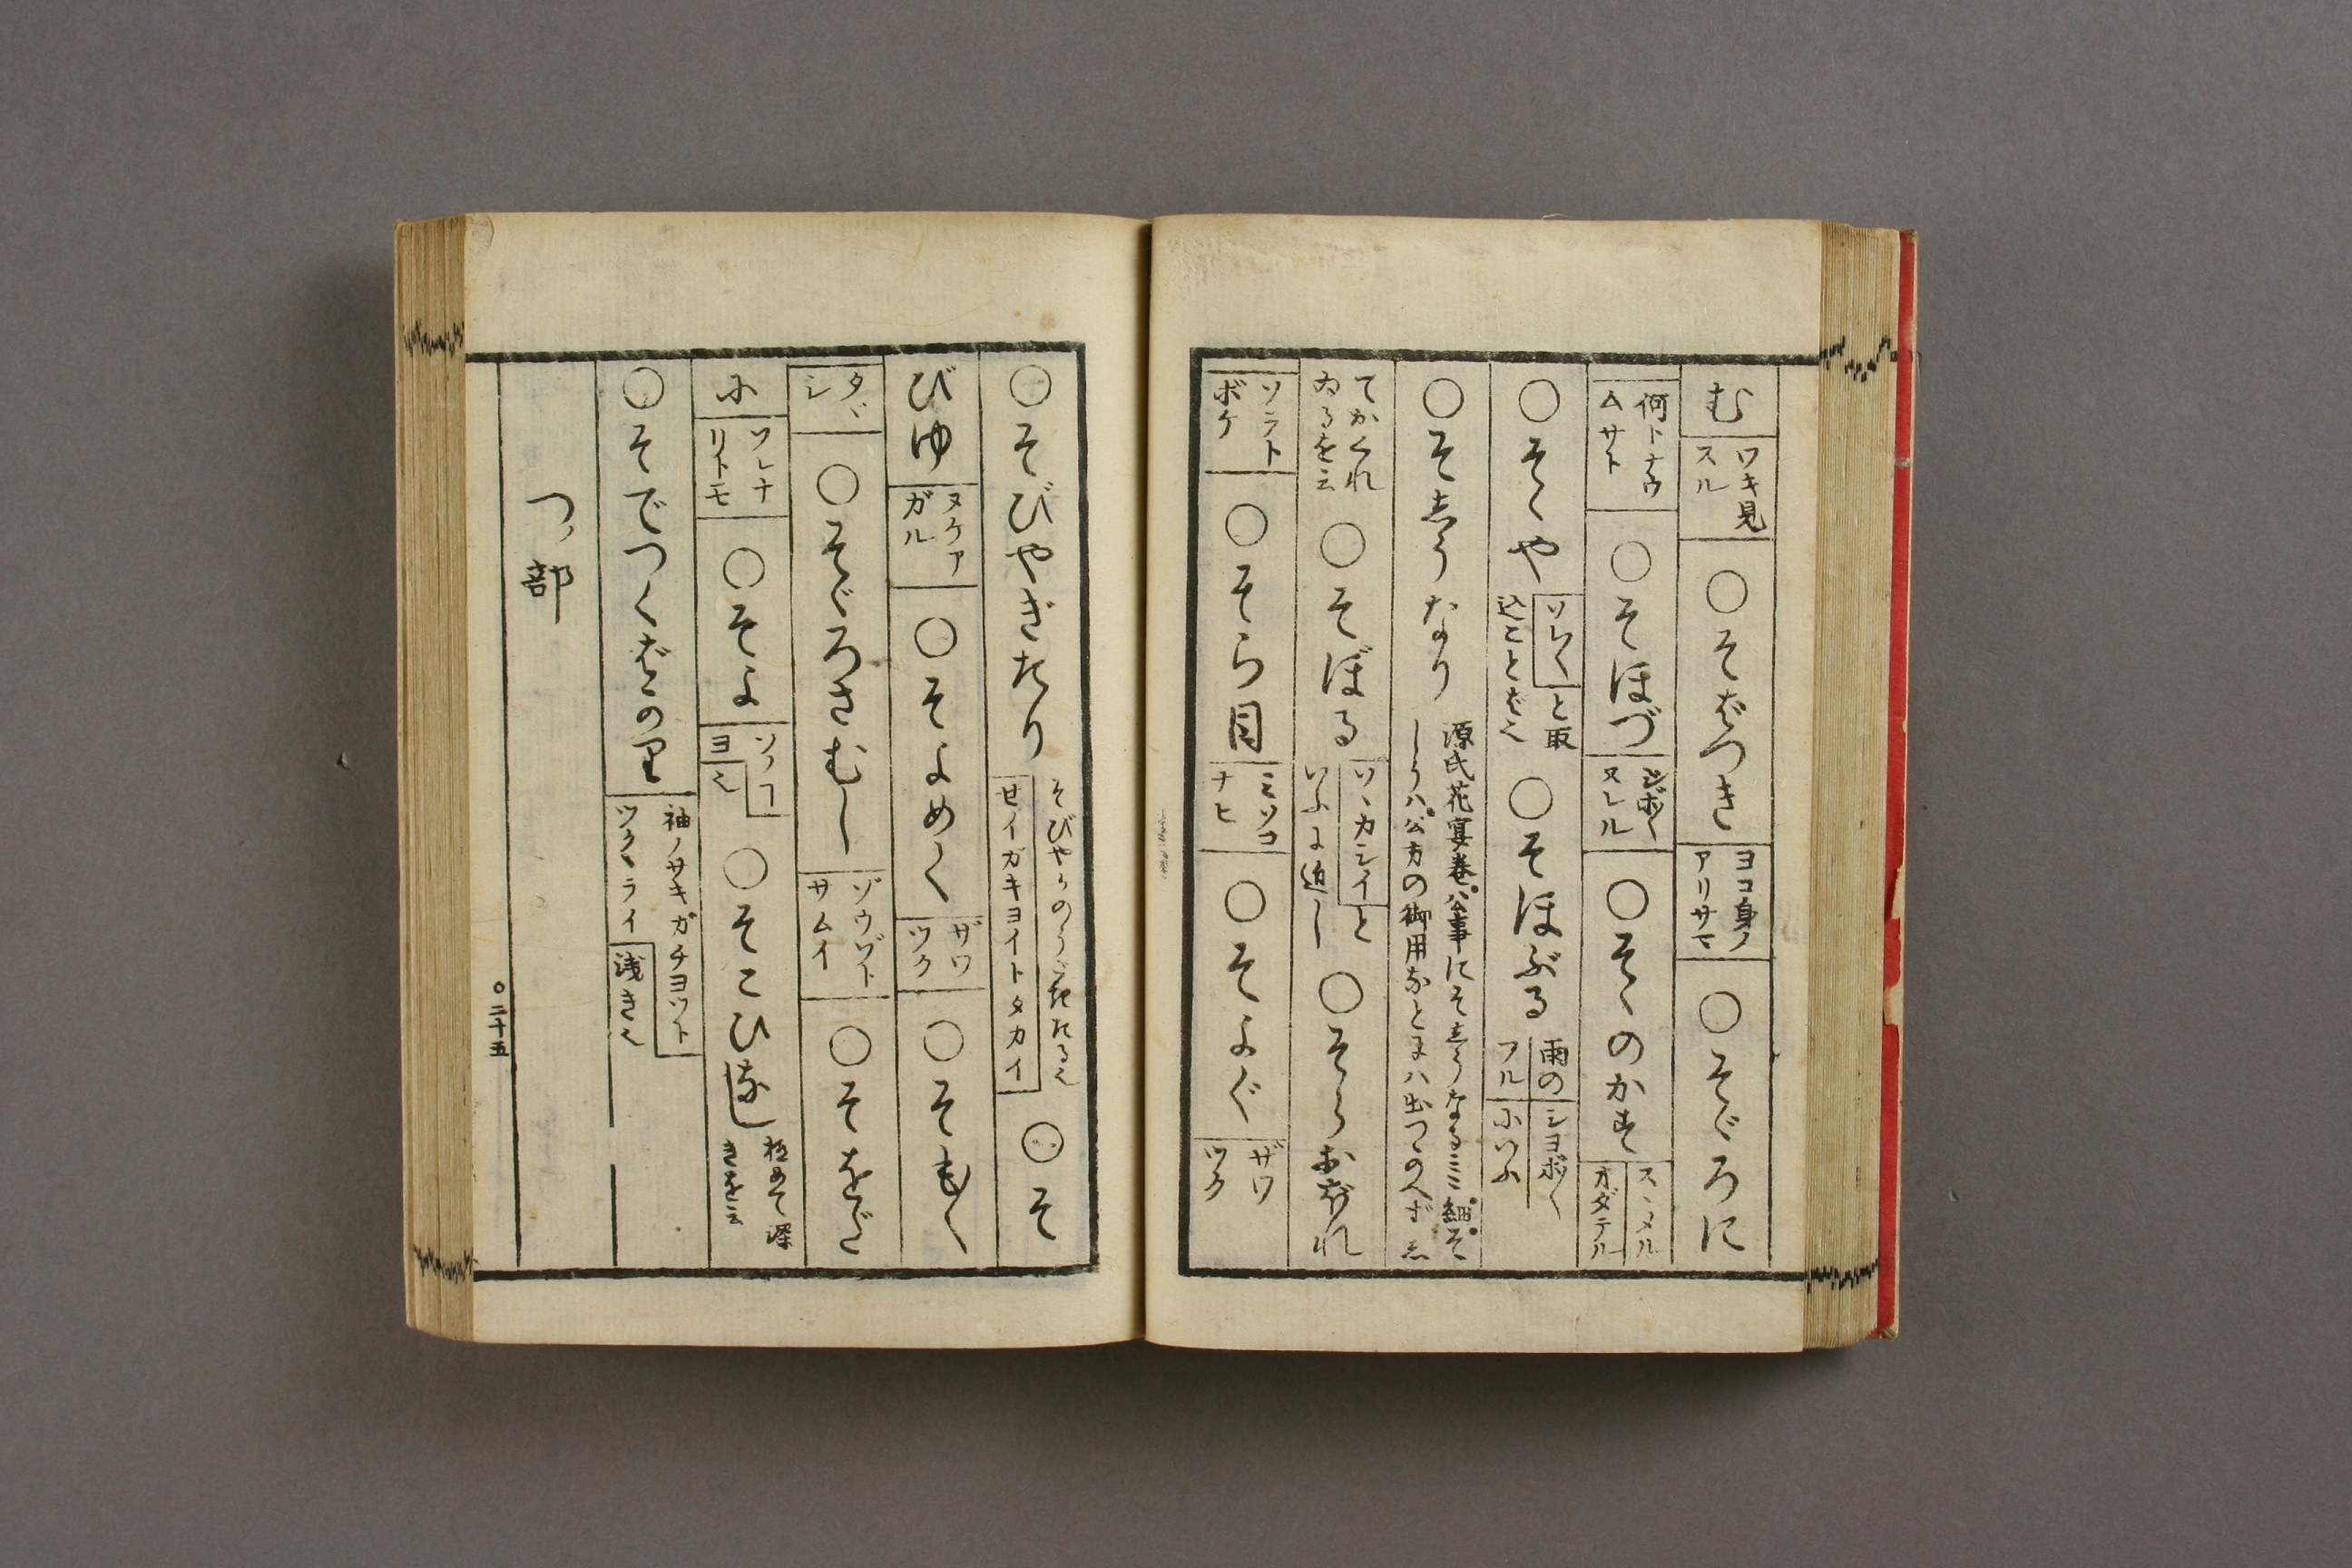 む ワキ見スル ○そばつき ヨコ身ノアリサマ ○そゞろに
何トナウムサト ○そほづ シボ〱ヌレル ○そゝのかす スヽメルオダテル
○そゝや ソレ〱と取込ことば也 ○そほぶる 雨のシヨボ〱フルにいふ
○そしうなり 源氏花宴巻公事にそしうなる 細そしうハ公方の御用
てかくれゐるを云 ○そぼる ソヽカシイといふに近し ○そらおぼれ
ソラトボケ ○そら目 ミソコナヒ ○そよぐ ザワツク
○そびやぎたり そびやかのうごきたる也 セイガキヨイトタカイ ○そ
びゆ ヌケアガル ○そよめく ザワツク ○そもく
タヾシ ○そゞろさむし ゾウゾトサムイ ○そをだ
に ソレナリトモ ○そよ ソノコヨ也 ○そこひなし 極めて深きを云
○そでつくばかり 袖ノサキガチヨツトツクヽライ 浅き也
つノ部
○二十五